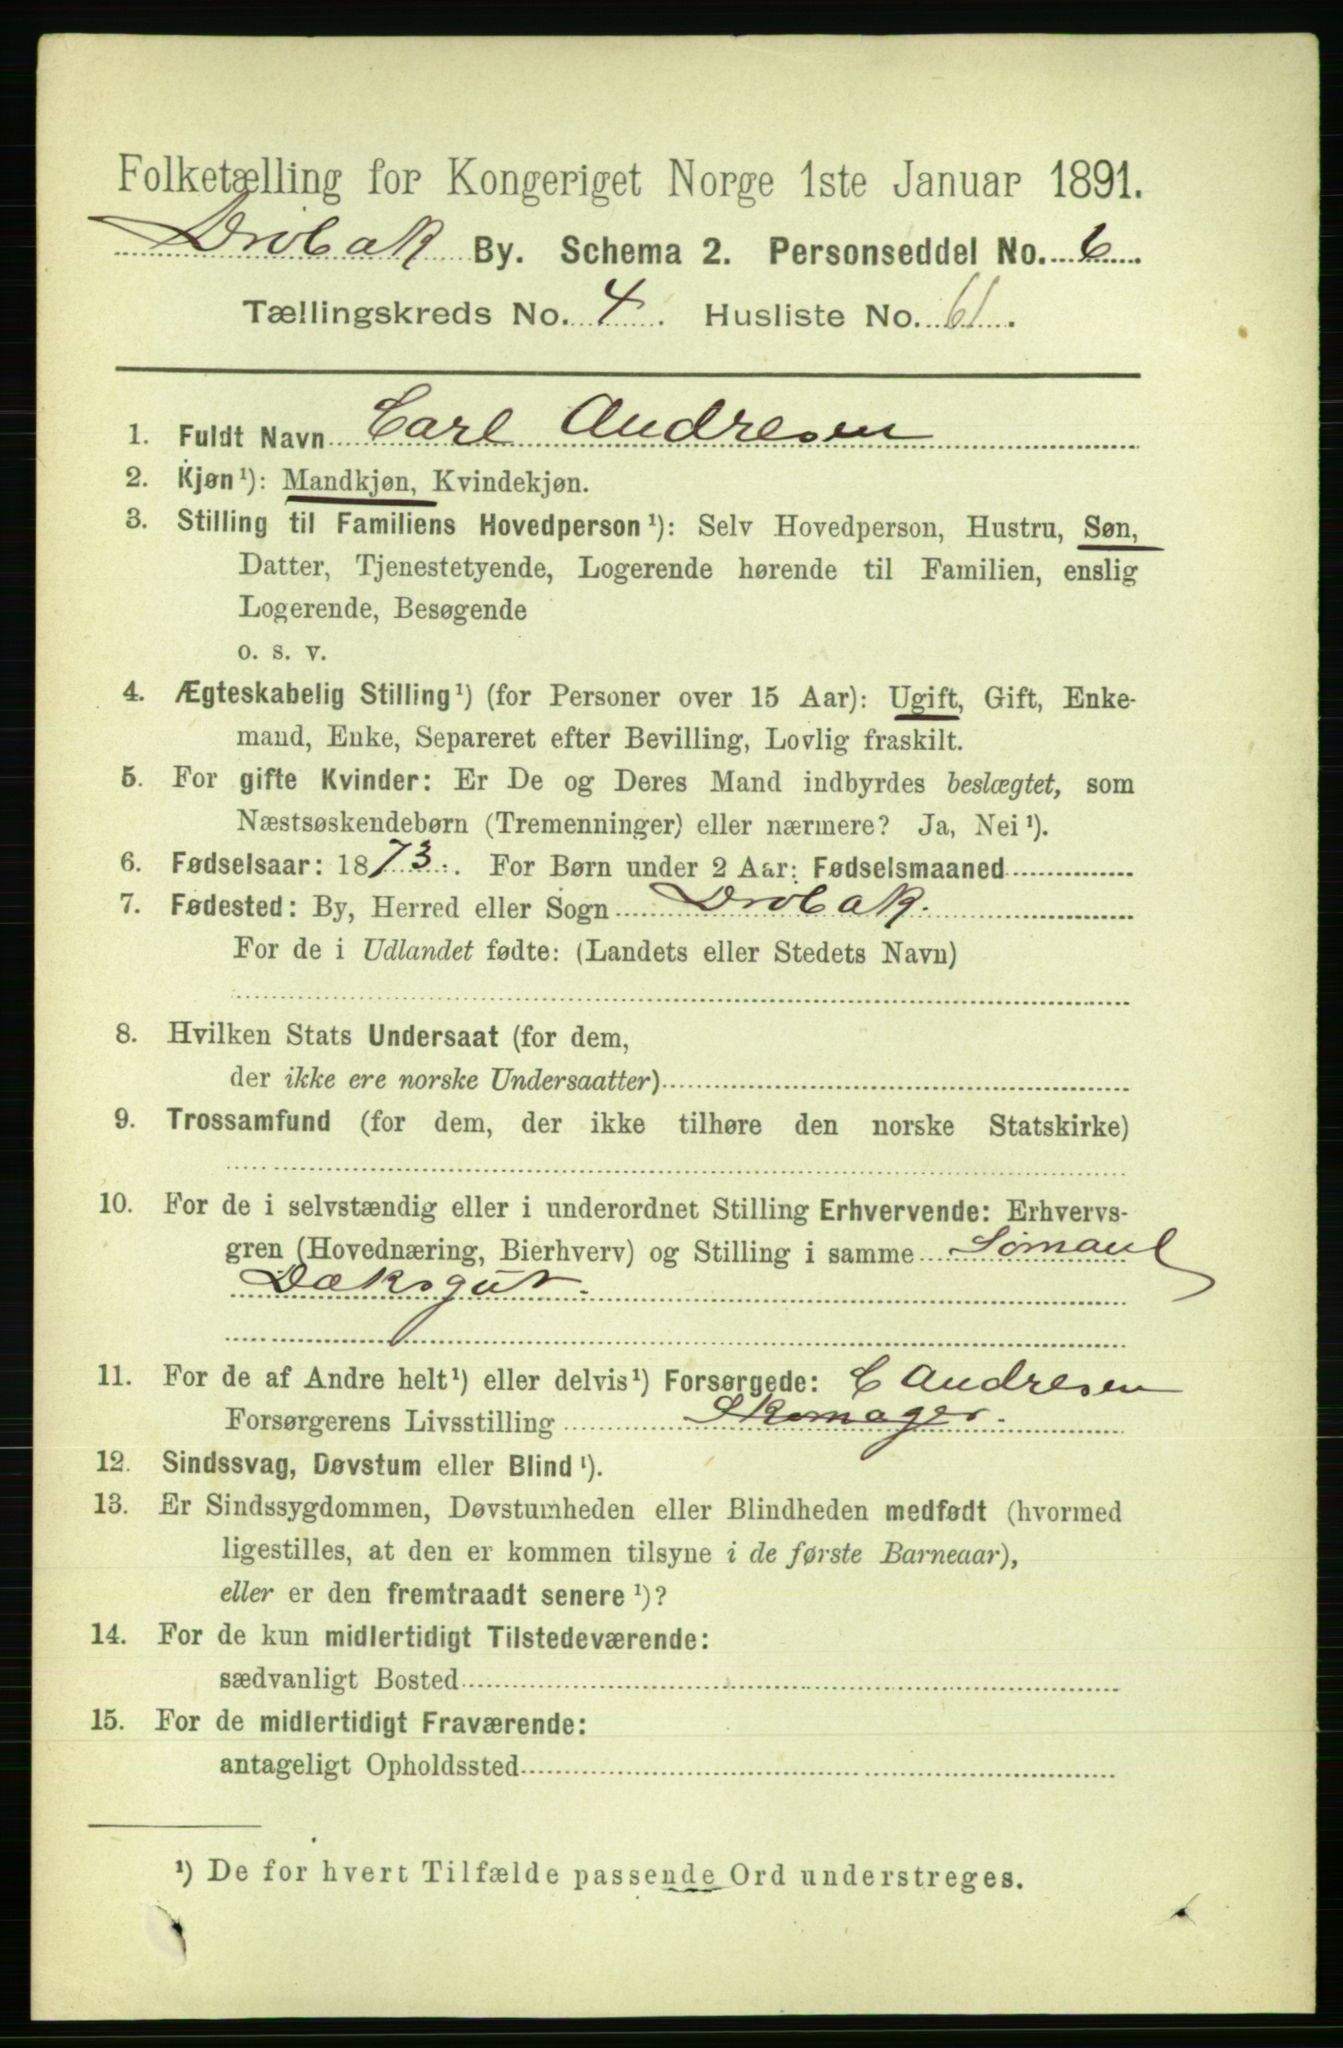 Folketælling for Kongeriget Norge 1ste Januar 1891.
Drøbak By. Schema 2. Personseddel No. 6.
Tællingskreds No. 4. Husliste No. 61.
1. Fuldt Navn Carl Andresen
2. Kjøn¹): Mandkjøn, Kvindekjøn.
3. Stilling til Familiens Hovedperson¹): Selv Hovedperson, Hustru, Søn,
Datter, Tjenestetyende, Logerende hørende til Familien, enslig
Logerende, Besøgende
o. s. v.
4. Ægteskabelig Stilling¹) (for Personer over 15 Aar): Ugift, Gift, Enke-
mand, Enke, Separeret efter Bevilling, Lovlig fraskilt.
5. For gifte Kvinder: Er De og Deres Mand indbyrdes beslægtet, som
Næstsøskendebørn (Tremenninger) eller nærmere? Ja, Nei¹).
6. Fødselsaar: 1873. For Børn under 2 Aar: Fødselsmaaned
7. Fødested: By, Herred eller Sogn Drøbak.
For de i Udlandet fødte: (Landets eller Stedets Navn)
8. Hvilken Stats Undersaat (for dem,
der ikke ere norske Undersaatter)
9. Trossamfund (for dem, der ikke tilhøre den norske Statskirke)
10. For de i selvstændig eller i underordnet Stilling Erhvervende: Erhvervs-
gren (Hovednæring, Bierhverv) og Stilling i samme Sømand
Dæksgut.
11. For de af Andre helt¹) eller delvis¹) Forsørgede: C Andresen
Forsørgerens Livsstilling Skomager.
12. Sindssvag, Døvstum eller Blind¹).
13. Er Sindssygdommen, Døvstumheden eller Blindheden medfødt (hvormed
ligestilles, at den er kommen tilsyne i de første Barneaar),
eller er den fremtraadt senere¹)?
14. For de kun midlertidigt Tilstedeværende:
sædvanligt Bosted
15. For de midlertidigt Fraværende:
antageligt Opholdssted
¹) De for hvert Tilfælde passende Ord understreges.